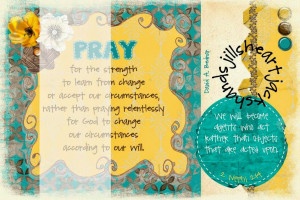 PRAY
for the strength
to learn from change
or accept our circumstances,
rather than praying relentlessly
for God to change
our circumstances
according to our will.
David A. Bednar
jillsheartjackshands
We will become
agents who act
rather than objects
that are acted upon.